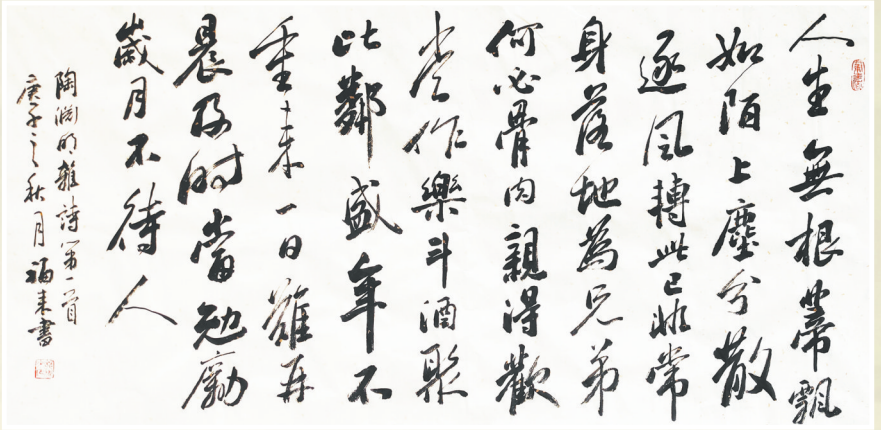 人生無根蒂飄
如陌上塵分散
逐風轉此已非常
身落地為兄弟
何必骨肉親得歡
當作樂斗酒聚
比鄰盛年不
重来一日難再
晨及時當勉勵
歲月不待人
陶淵明雜詩第一首
庚子之秋月福来書